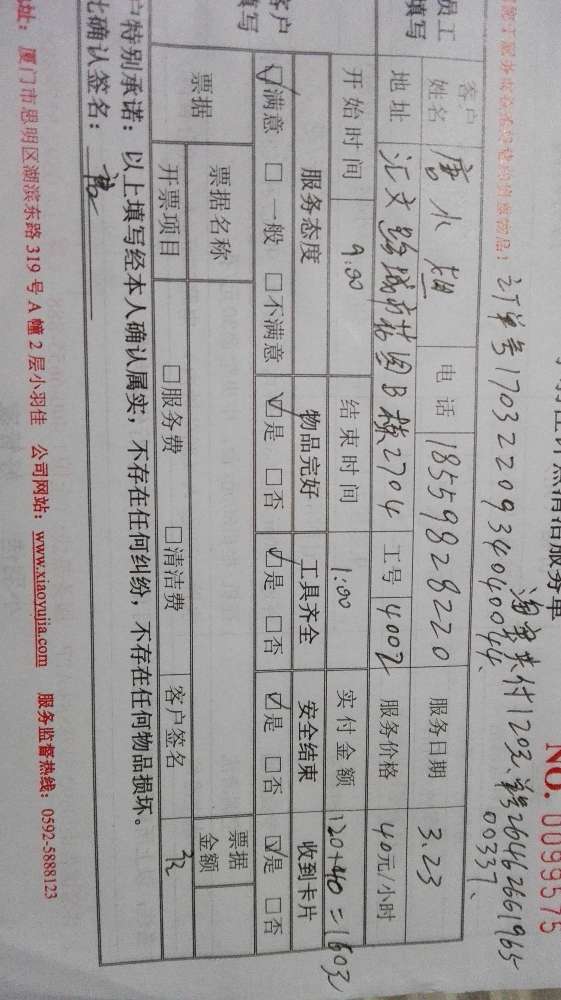 点清洁服务单
NO. 0099575
淘宝支付120元、单号2646262661965
00337、
订单号170322093404044、
员工
填写
客户
姓名
电话
18559828220
服务日期
3.23
地址
B栋2704
工号
4002
服务价格
40元/小时
开始时间
9:00
结束时间
1:00
实付金额
120+40=160元
客户
填写
服务态度
物品完好
工具齐全
安全结束
收到卡片
☑满意 □一般 □不满意
☑是 □否
☑是 □否
☑是 □否
☑是 □否
票据
票据名称
票据
金额
开票项目
□服务费 □清洁费
客户签名
户特别承诺：以上填写经本人确认属实，不存在任何纠纷，不存在任何物品损坏。
此确认签名：
址：厦门市思明区湖滨东路 319 号 A 幢 2 层小羽佳 公司网站：www.xiaoyujia.com 服务监督热线：0592-5888123